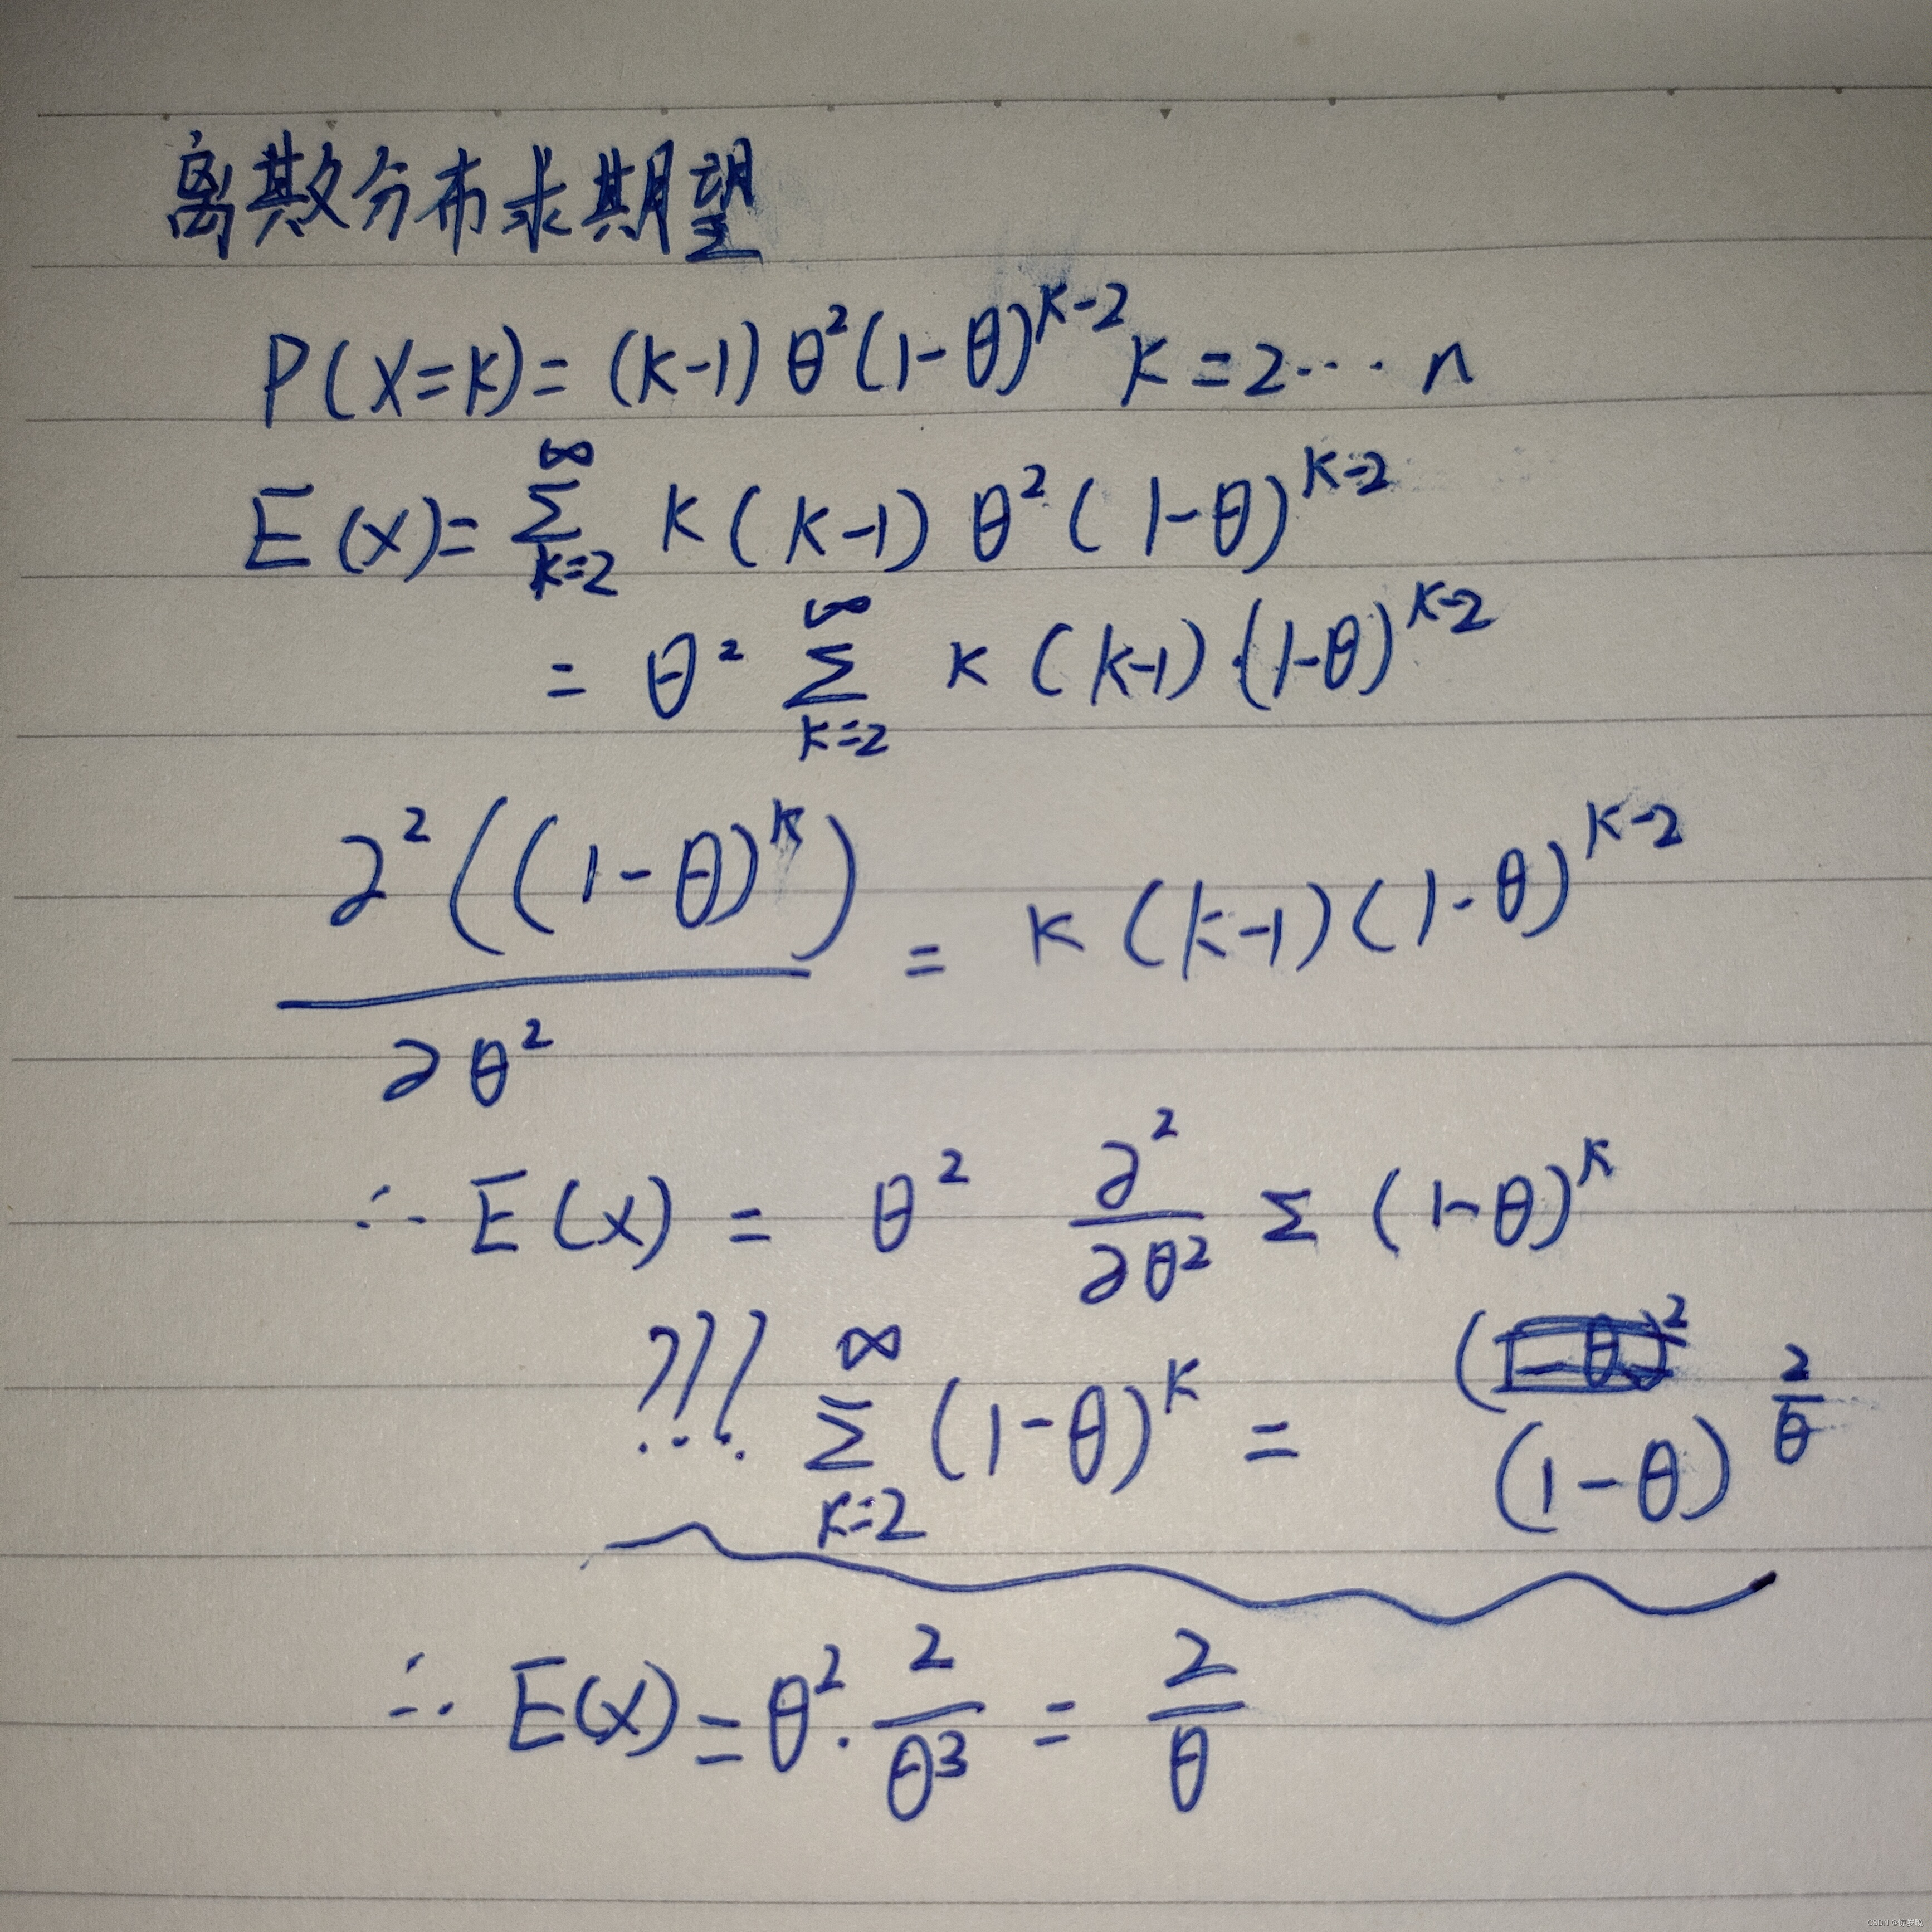 离散分布求期望
P(X=k)= (k-1) θ²(1-θ)^{k-2} k=2⋯n
E(x)= \sum_{k=2}^{∞} k(k-1) θ²(1-θ)^{k-2}
= θ² \sum_{k=2}^{∞} k(k-1)·(1-θ)^{k-2}
\frac{∂²((1-θ)^k)}{∂θ²} = k(k-1)(1-θ)^{k-2}
∴ E(x) = θ² \frac{∂²}{∂θ²} Σ (1-θ)^k
??? \sum_{k=2}^{∞} (1-θ)^k = (1-θ)^{\frac{2}{θ}}
∴ E(x) = θ²·\frac{2}{θ³} = \frac{2}{θ}